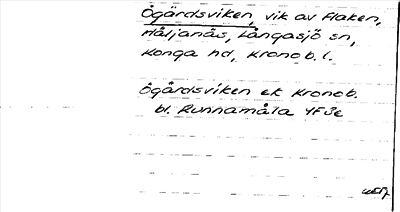 Ögärdsviken, vik av Flaken,
Håljanäs, Långasjö sn,
Konga hd, Kronob. l.
Ögårdsviken ek Kronob.
bl. Runnamåla 4F3e